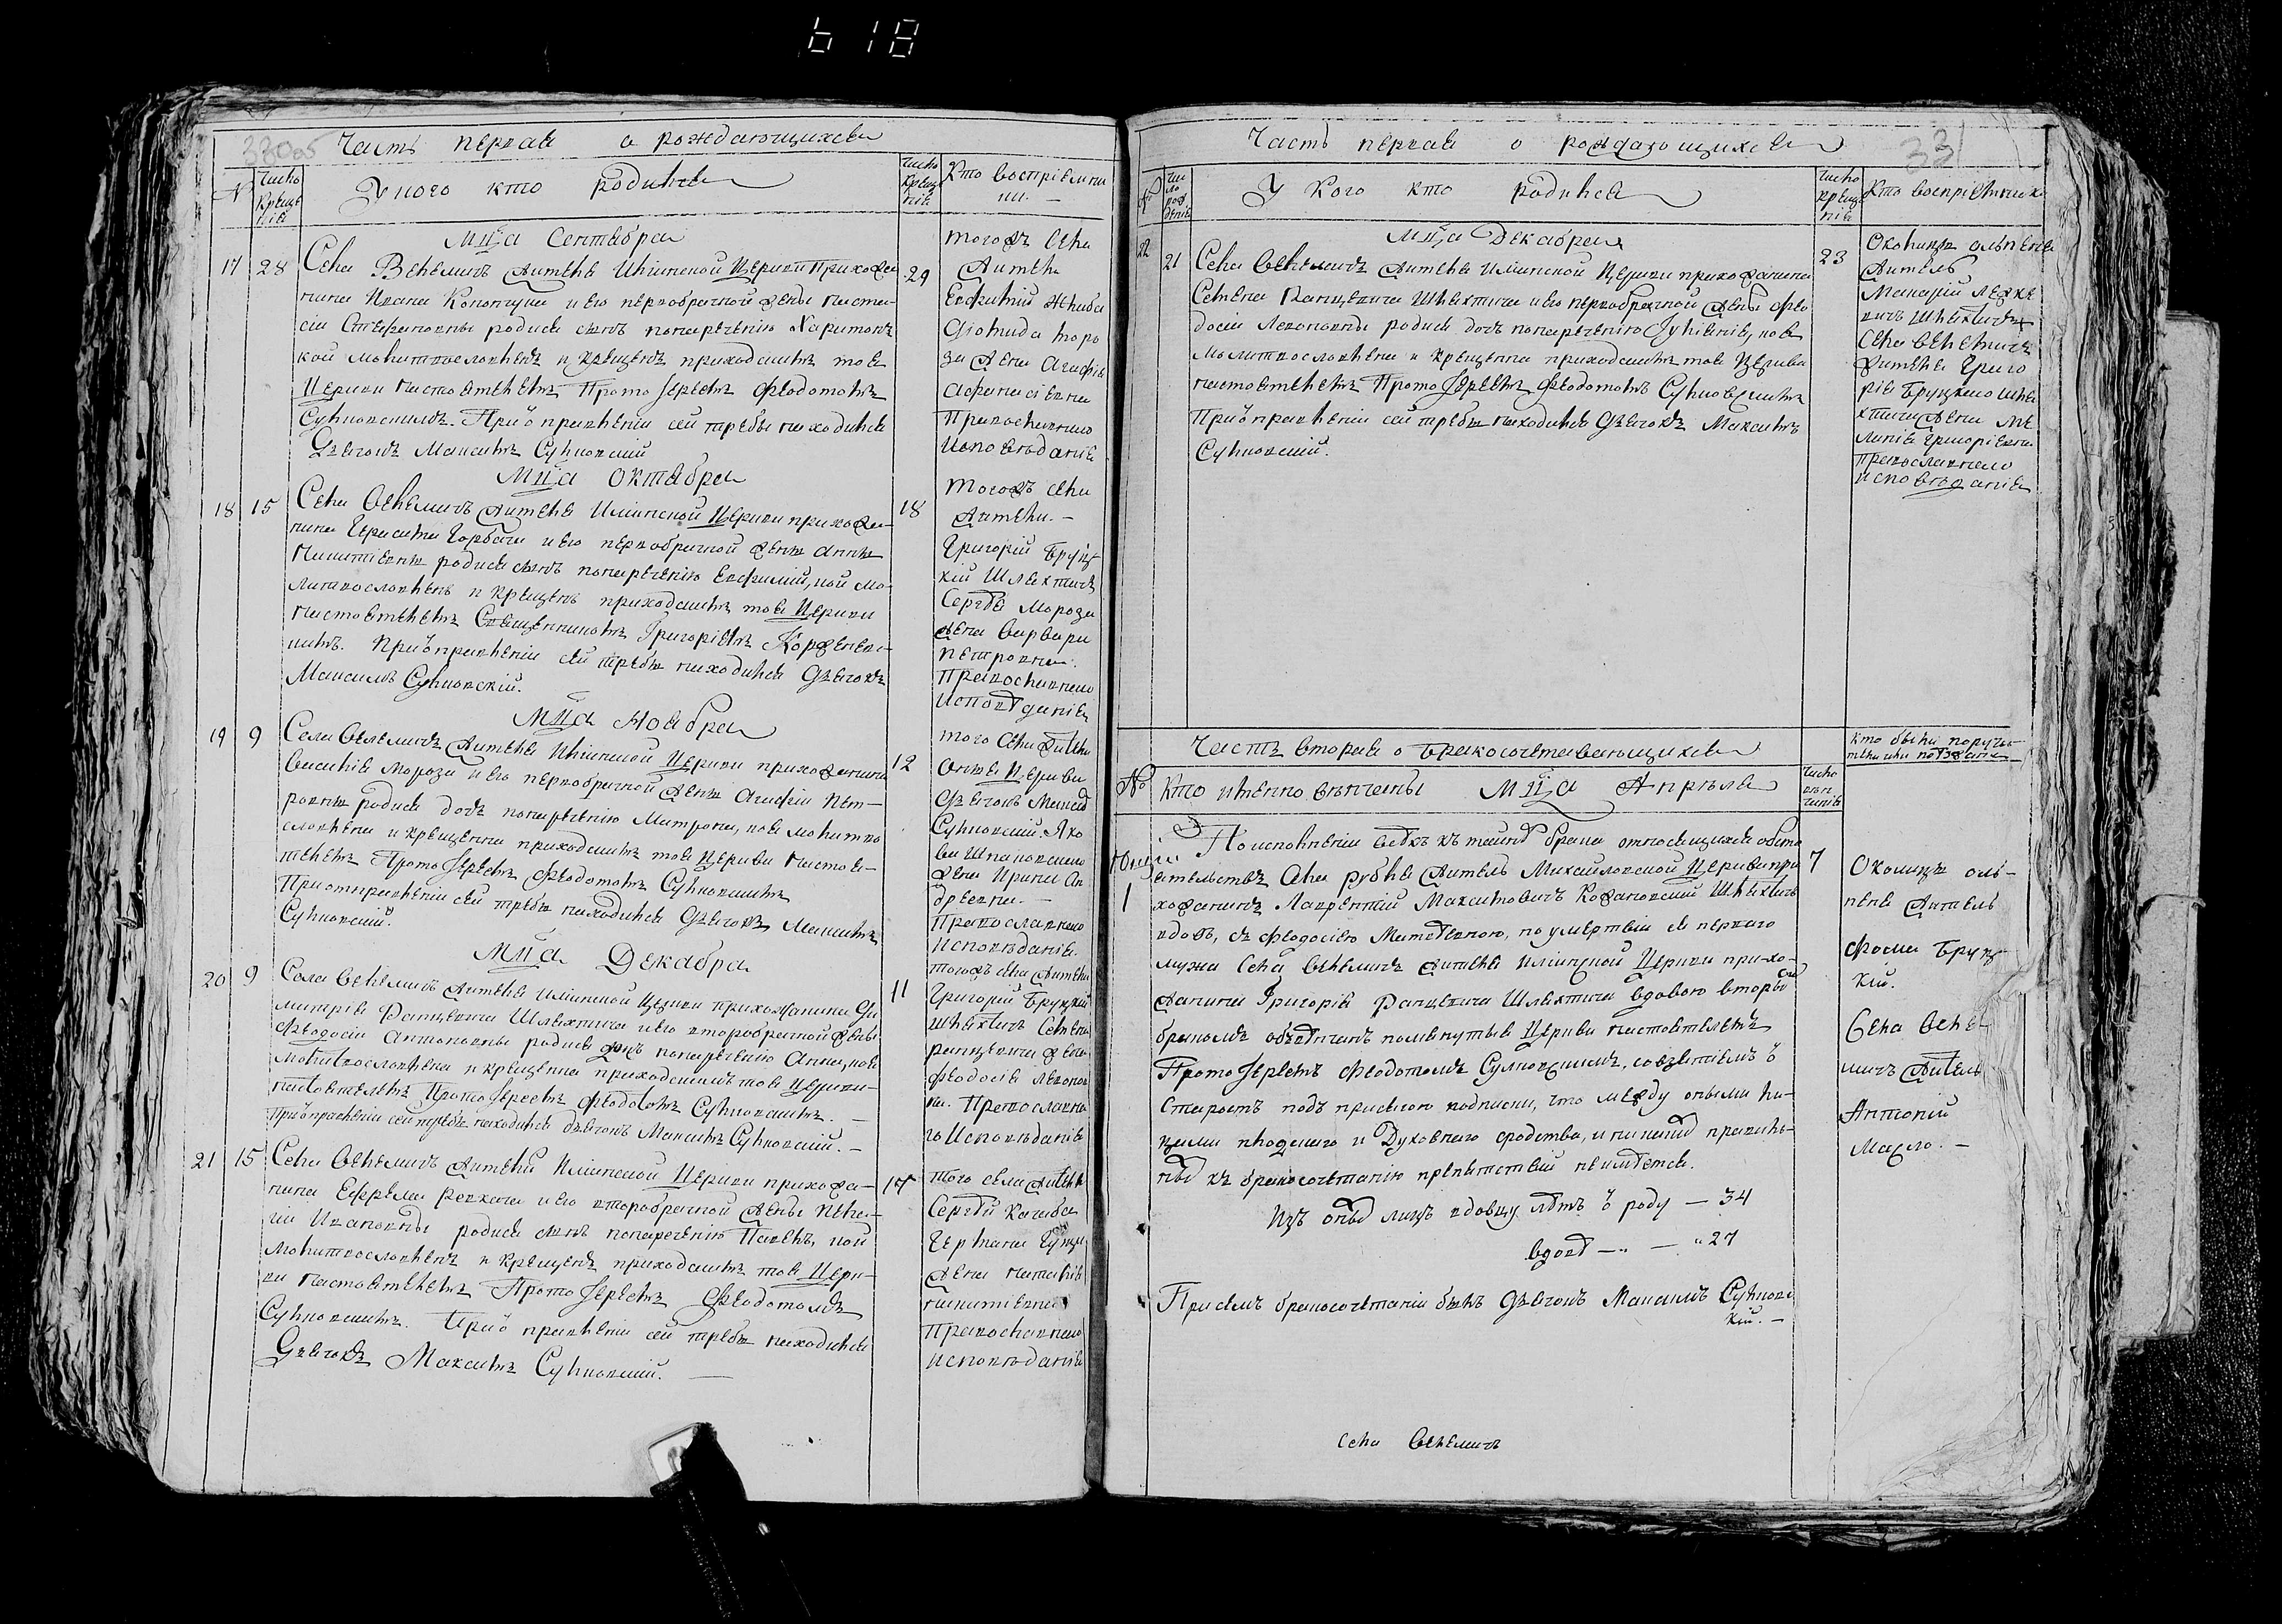 618
Часть первая о рождающихся
№
число крещенія
У кого кто родился
число крещенія
Кто воспріемники. —
Мца Сентября
17 28 29
Села Велемичъ Жителя Иліинской Церкви прихожа-
нина Ивана Колотуши и его первобрачной жены Наста-
сіи Стефановны родися сынъ понареченію Харитонъ
кой молитвословленъ и крещенъ приходскимъ тоя
Церкви Настоятелемъ Прото Іереемъ Феодотомъ
Сулковскимъ. При отправленіи сей требы находился
Дьячокъ Максимъ Сулковскій
тогожъ Села
Жители
Евфимій
Діомида Моро
за жена Агафія
Афанасіевна
Православнаго
Исповѣданія
Мца Октября
18 15 18
Села Велемичъ Жителя Иліинской Церкви прихожа-
нина Герасима Горбача и его первобрачной жены Анны
Никитіевны родися сынъ понареченію Евфимій, кой мо-
литвословленъ и крещенъ приходскимъ тоя Церкви
Настоятелемъ Священникомъ Григоріемъ Корженев-
скимъ. При отправленіи сей требы находился Дьячокъ
Максимъ Сулковскій.
тогожъ Села
Жители. —
Григорій Бруц-
кій Шляхтичъ
Сергѣя Мороза
жена Варвара
Петровна.
Православнаго
Исповѣданія
Мца Ноября
19 9 12
Села Велемичъ Жителя Иліинской Церкви прихожанина
Василія Мороза и его первобрачной жены Агафіи Пет-
ровны родися дочъ понареченію Матрона, коя молитво
словлена и крещенна приходскимъ тоя Церкви Настоя-
телемъ Прото Іереемъ Феодотомъ Сулковскимъ
При отправленіи сей требы находился Дьячокъ Максимъ
Сулковскій.
того Села Жители
онія Церкви
Дьячокъ Максимъ
Сулковскій. Яко
ва Шпаковскаго
жена Ирина Ан
дреевна. —
Православнаго
Исповѣданія
Мца Декабря
20 9 11
Села Велемичъ Жителя Иліинской Церкви прихожанина Ди
митрія Ранцевича Шляхтича и его второбрачной жены
Феодосіи Антоновны родися дочъ понареченію Анна, коя
молитвословленна и крещенна приходскимъ тоя Церкви
Настоятелемъ Прото Іереемъ Феодотомъ Сулковскимъ. —
При отправленіи сей требы находился дьячокъ Максимъ Сулковскій. —
тогожъ села Жители
Григорій Бруцкій
Шляхтичъ Семена
Ранцевича жена
Феодосія Левонов
на. Православна
го Исповѣданія
21 15 17
Села Велемичъ Жителя Иліинской Церкви прихожа-
нина Ефрема Ревкача и его второбрачной жены Пела-
гіи Ивановны родися сынъ понареченію Павелъ, кой
молитвословленъ и крещенъ приходскимъ тоя Церк-
ви Настоятелемъ Прото Іереемъ Феодотомъ
Сулковскимъ. При отправленіи сей требы находился
Дьячокъ Максимъ Сулковскій. —
того села Жители
Сергѣй Качаба
Германа
жена Наталія
Никитіевна
Православнаго
исповѣданія
33
Часть первая о рождающихся
№
число рожденія
У кого кто родился
число крещенія
Кто воспріемники
Мца Декабря
22 21 23
Села Велемичъ Жителя Иліинской Церкви прихожанина
Семена Ранцевича Шляхтича и его первобрачной жены Фео
досіи Левоновны родися дочъ понареченію Іуліанія, коя
Молитвословлена и крещенна приходскимъ тоя Церкви
Настоятелемъ Прото Іереемъ Феодотомъ Сулковскимъ
При отправленіи сей требы находился Дьячокъ Максимъ
Сулковскій.
Околицы Ольпеня
Житель
Манасій
Шляхтичъ
Села Велемичъ
Жителя Григо
рія Бруцкаго Шля
хтича жена Ме
ланія Григоріевна
Православнаго
исповѣданія
Часть вторая о бракосочетавающихся
кто были поручи-
тели или поѣзжани
№
Кто именно вѣнчаны Мца Апрѣля
число вѣнчанія
Юлій
1
7
По исполненіи всѣхъ къ тайнѣ брака относящихся обсто
ятельствъ Села Рубля Житель Михайловской Церкви при
хожанинъ Лаврентій Максимовичъ Кожановскій Шляхтичъ
вдовъ, съ Феодосіею Матвѣевною, по умертвіи ея перваго
мужа Села Велемичъ Жителя Иліинской Церкви прихо-
жанина Григорія Ранцевича Шляхтича вдовою вторымъ
бракомъ обвѣнчанъ помянутыя Церкви настоятелемъ
Прото Іереемъ Феодотомъ Сулковскимъ, совзятіемъ ѿ
Старостъ подъ присягою подписки, что между оными ли-
цами плодскаго и Духовнаго сродства, и никакой правиль-
ной къ бракосочетанію препятствій неимѣется.
Изъ оныхъ лицъ вдовцу лѣтъ ѿ роду — 34
вдовѣ — " — " 27
При семъ бракосочетаніи былъ Дьячокъ Максимъ Сулковс
кій. —
Околицы Оль-
пеня Житель
Фома Бруц-
кій.
Села Веле-
мичъ Житель
Антоній
Масло. —
села Велемичъ